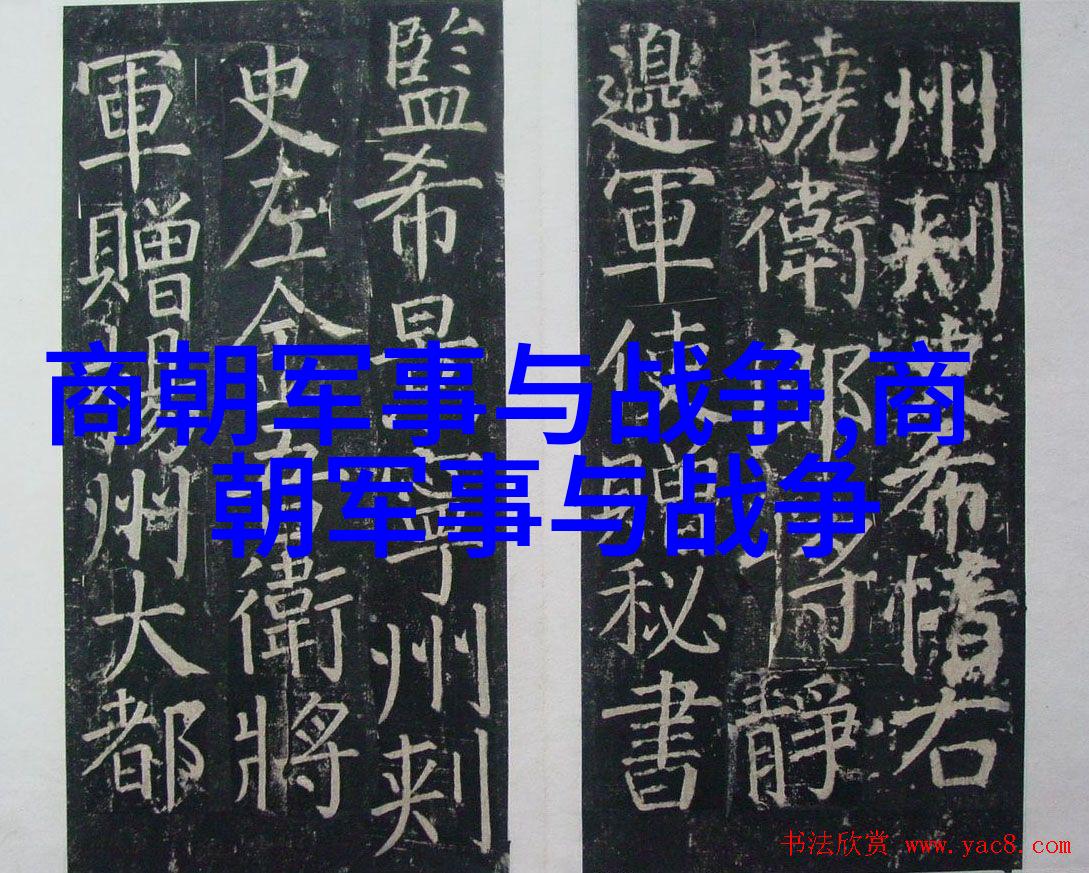 商朝军事与战争,商
朝军事与战争
州刺史希右
驍衛郎將靜
邊軍使贈秘書
監希寧州刺
史左金吾衛將
軍贈揚州大都
书法欣赏 www.yac8.com